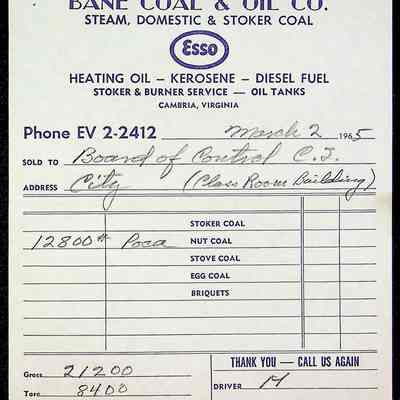 BANE COAL & OIL CO.
STEAM, DOMESTIC & STOKER COAL
Esso
HEATING OIL — KEROSENE — DIESEL FUEL
STOKER & BURNER SERVICE — OIL TANKS
CAMBRIA, VIRGINIA
Phone EV 2-2412 March 2 1965
SOLD TO Board of Control C.I.
ADDRESS City (Class Room Building)
STOKER COAL
12800# Poca NUT COAL
STOVE COAL
EGG COAL
BRIQUETS
Gross 21200 THANK YOU — CALL US AGAIN
Tare 8400 DRIVER H